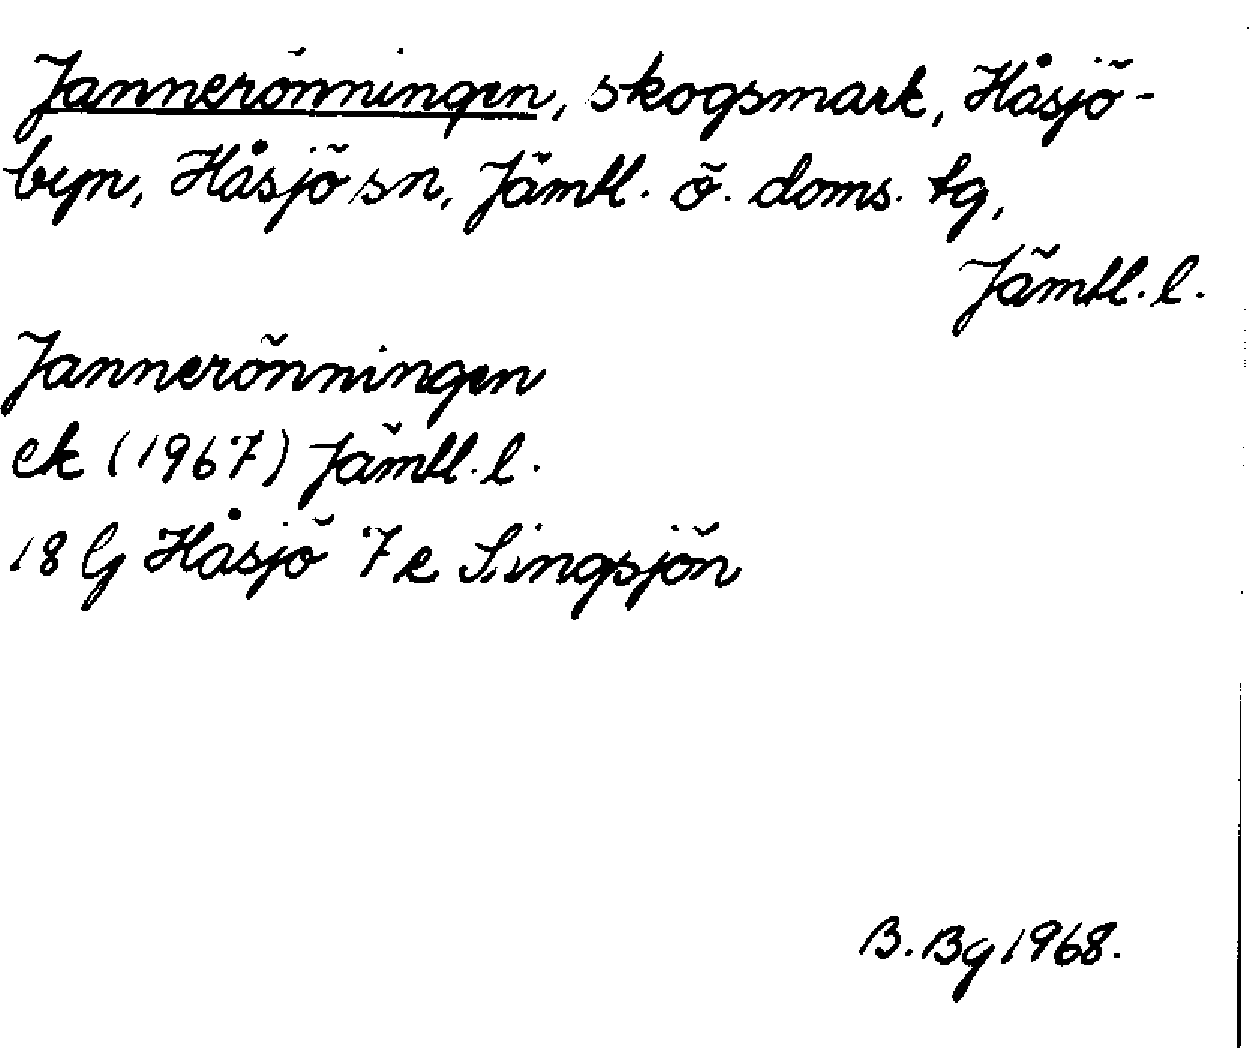 Jannerönningen, skogsmark, Håsjö-
byn, Håsjö sn, Jämtl. ö. doms. tg,
Jämtl. l.
Jannerönningen
ek (1967) Jämtl. l.
18 G Håsjö 7 e Singsjön
B. Bg 1968.